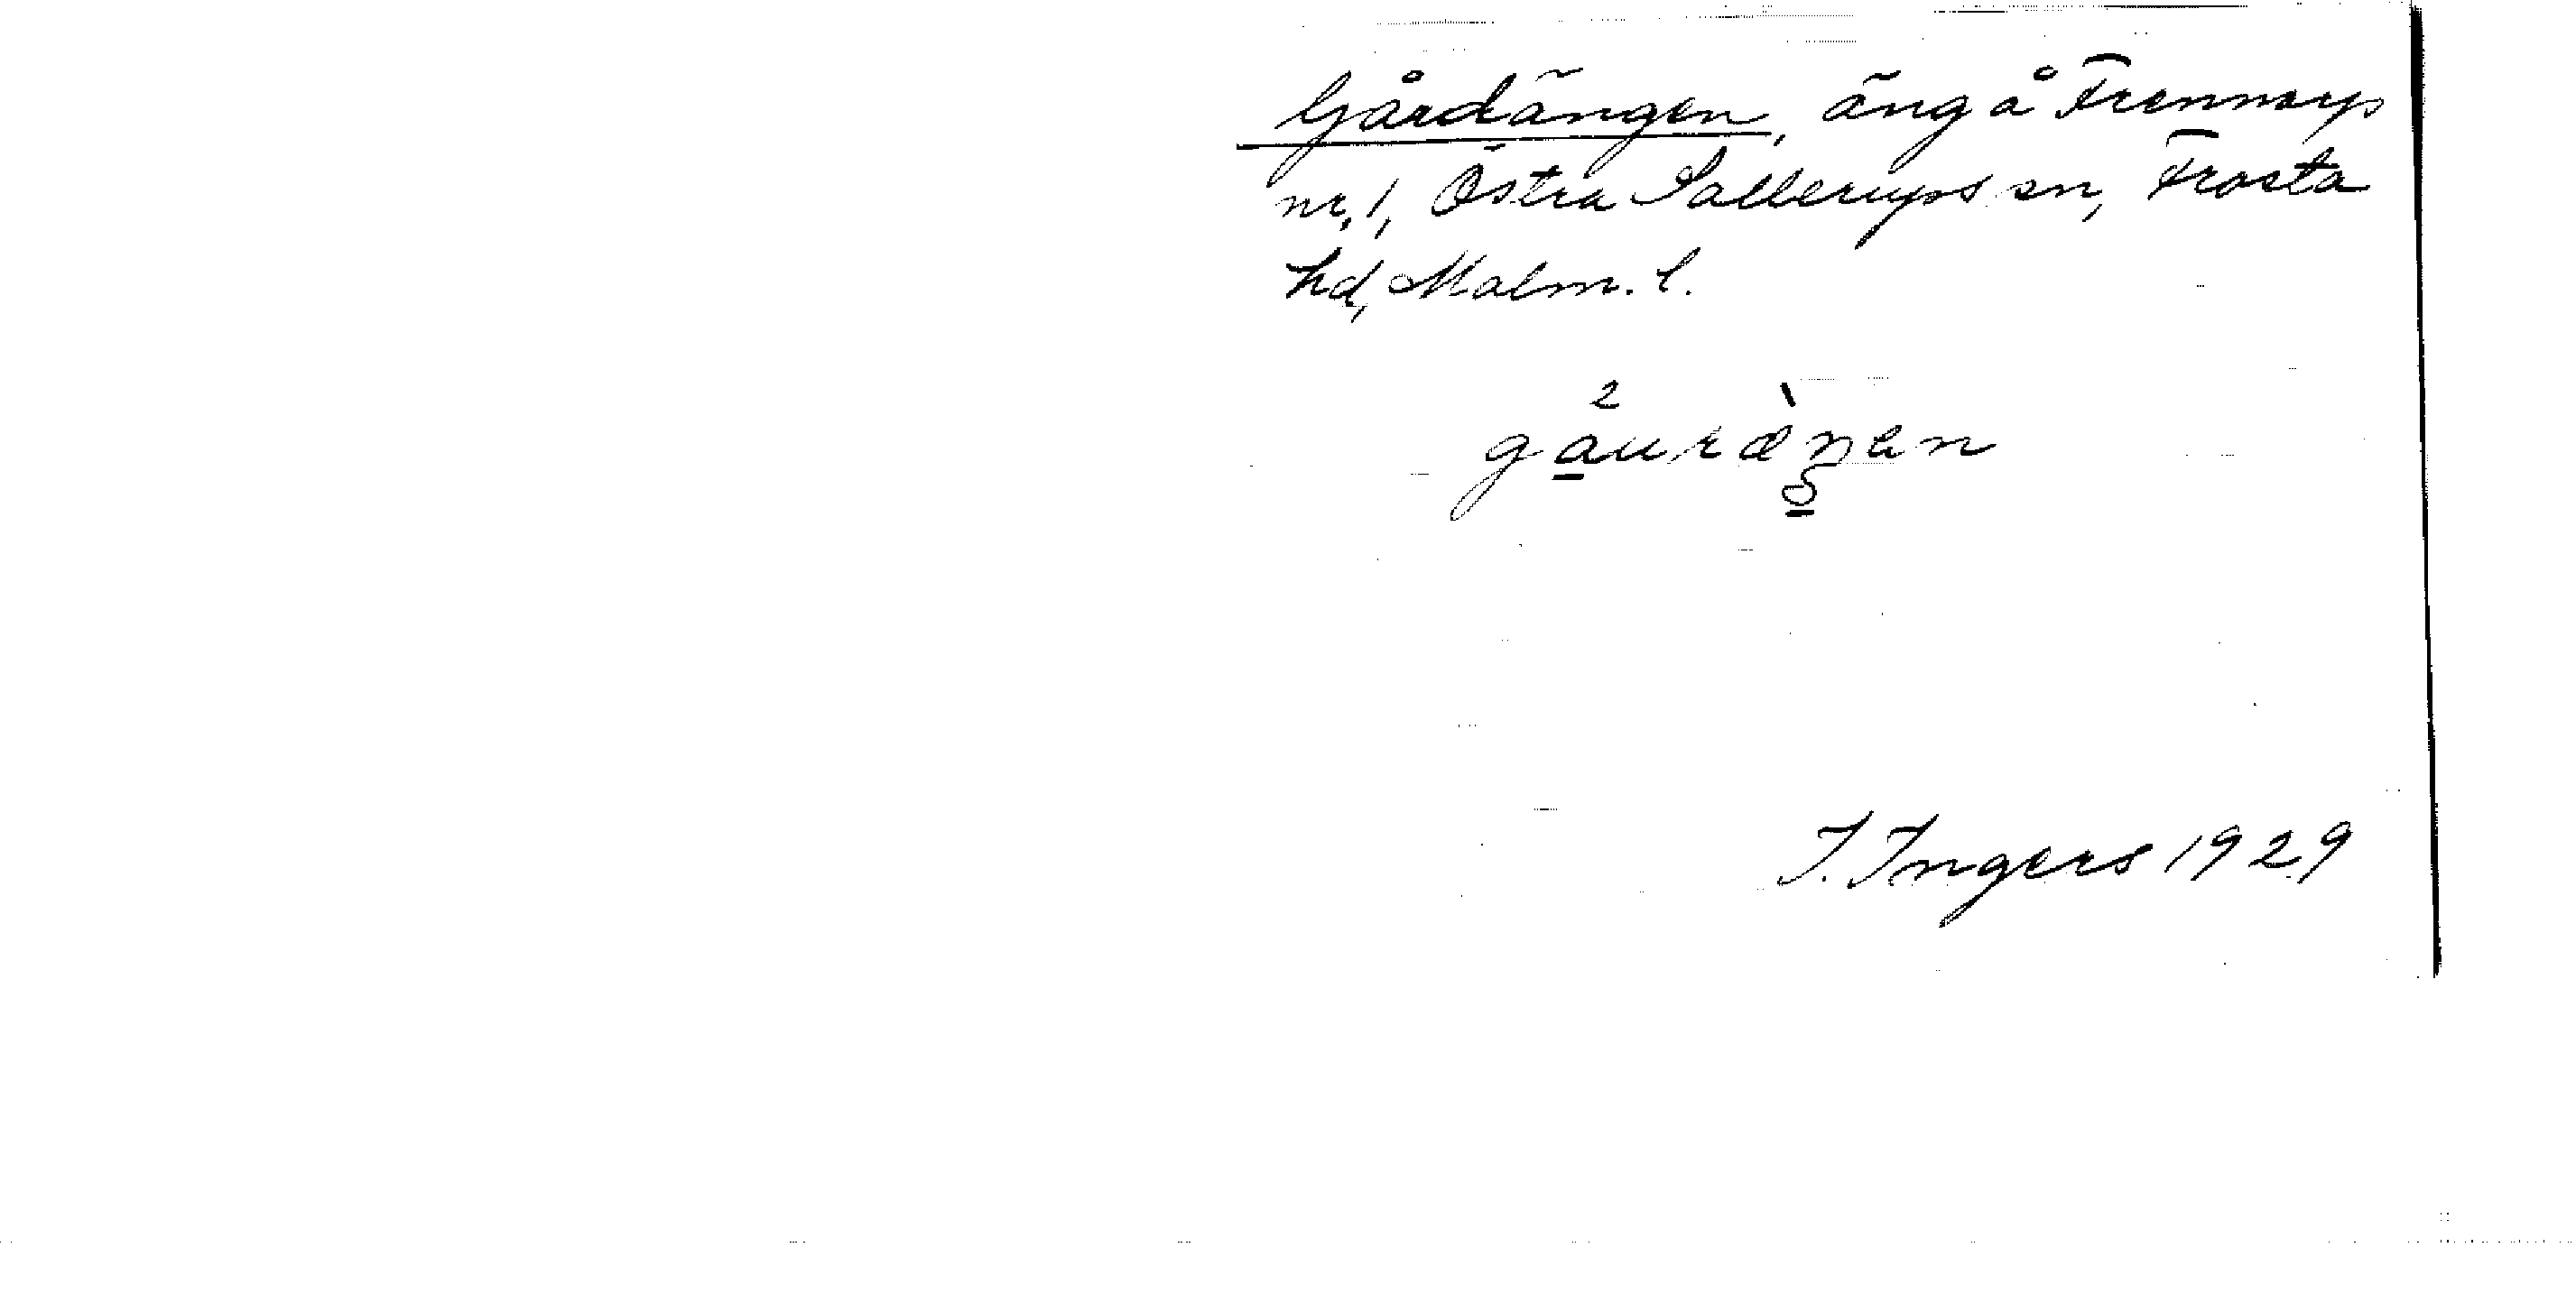 Gårdängen, äng å Frennarp
nr. 1, Östra Sallerups sn, Frosta
hd, Malm. l.
I. Ingers 1929